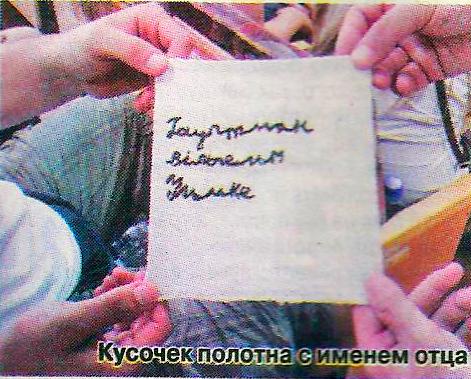 Гауптман
вільгельм
Кусочек полотна с именем отца